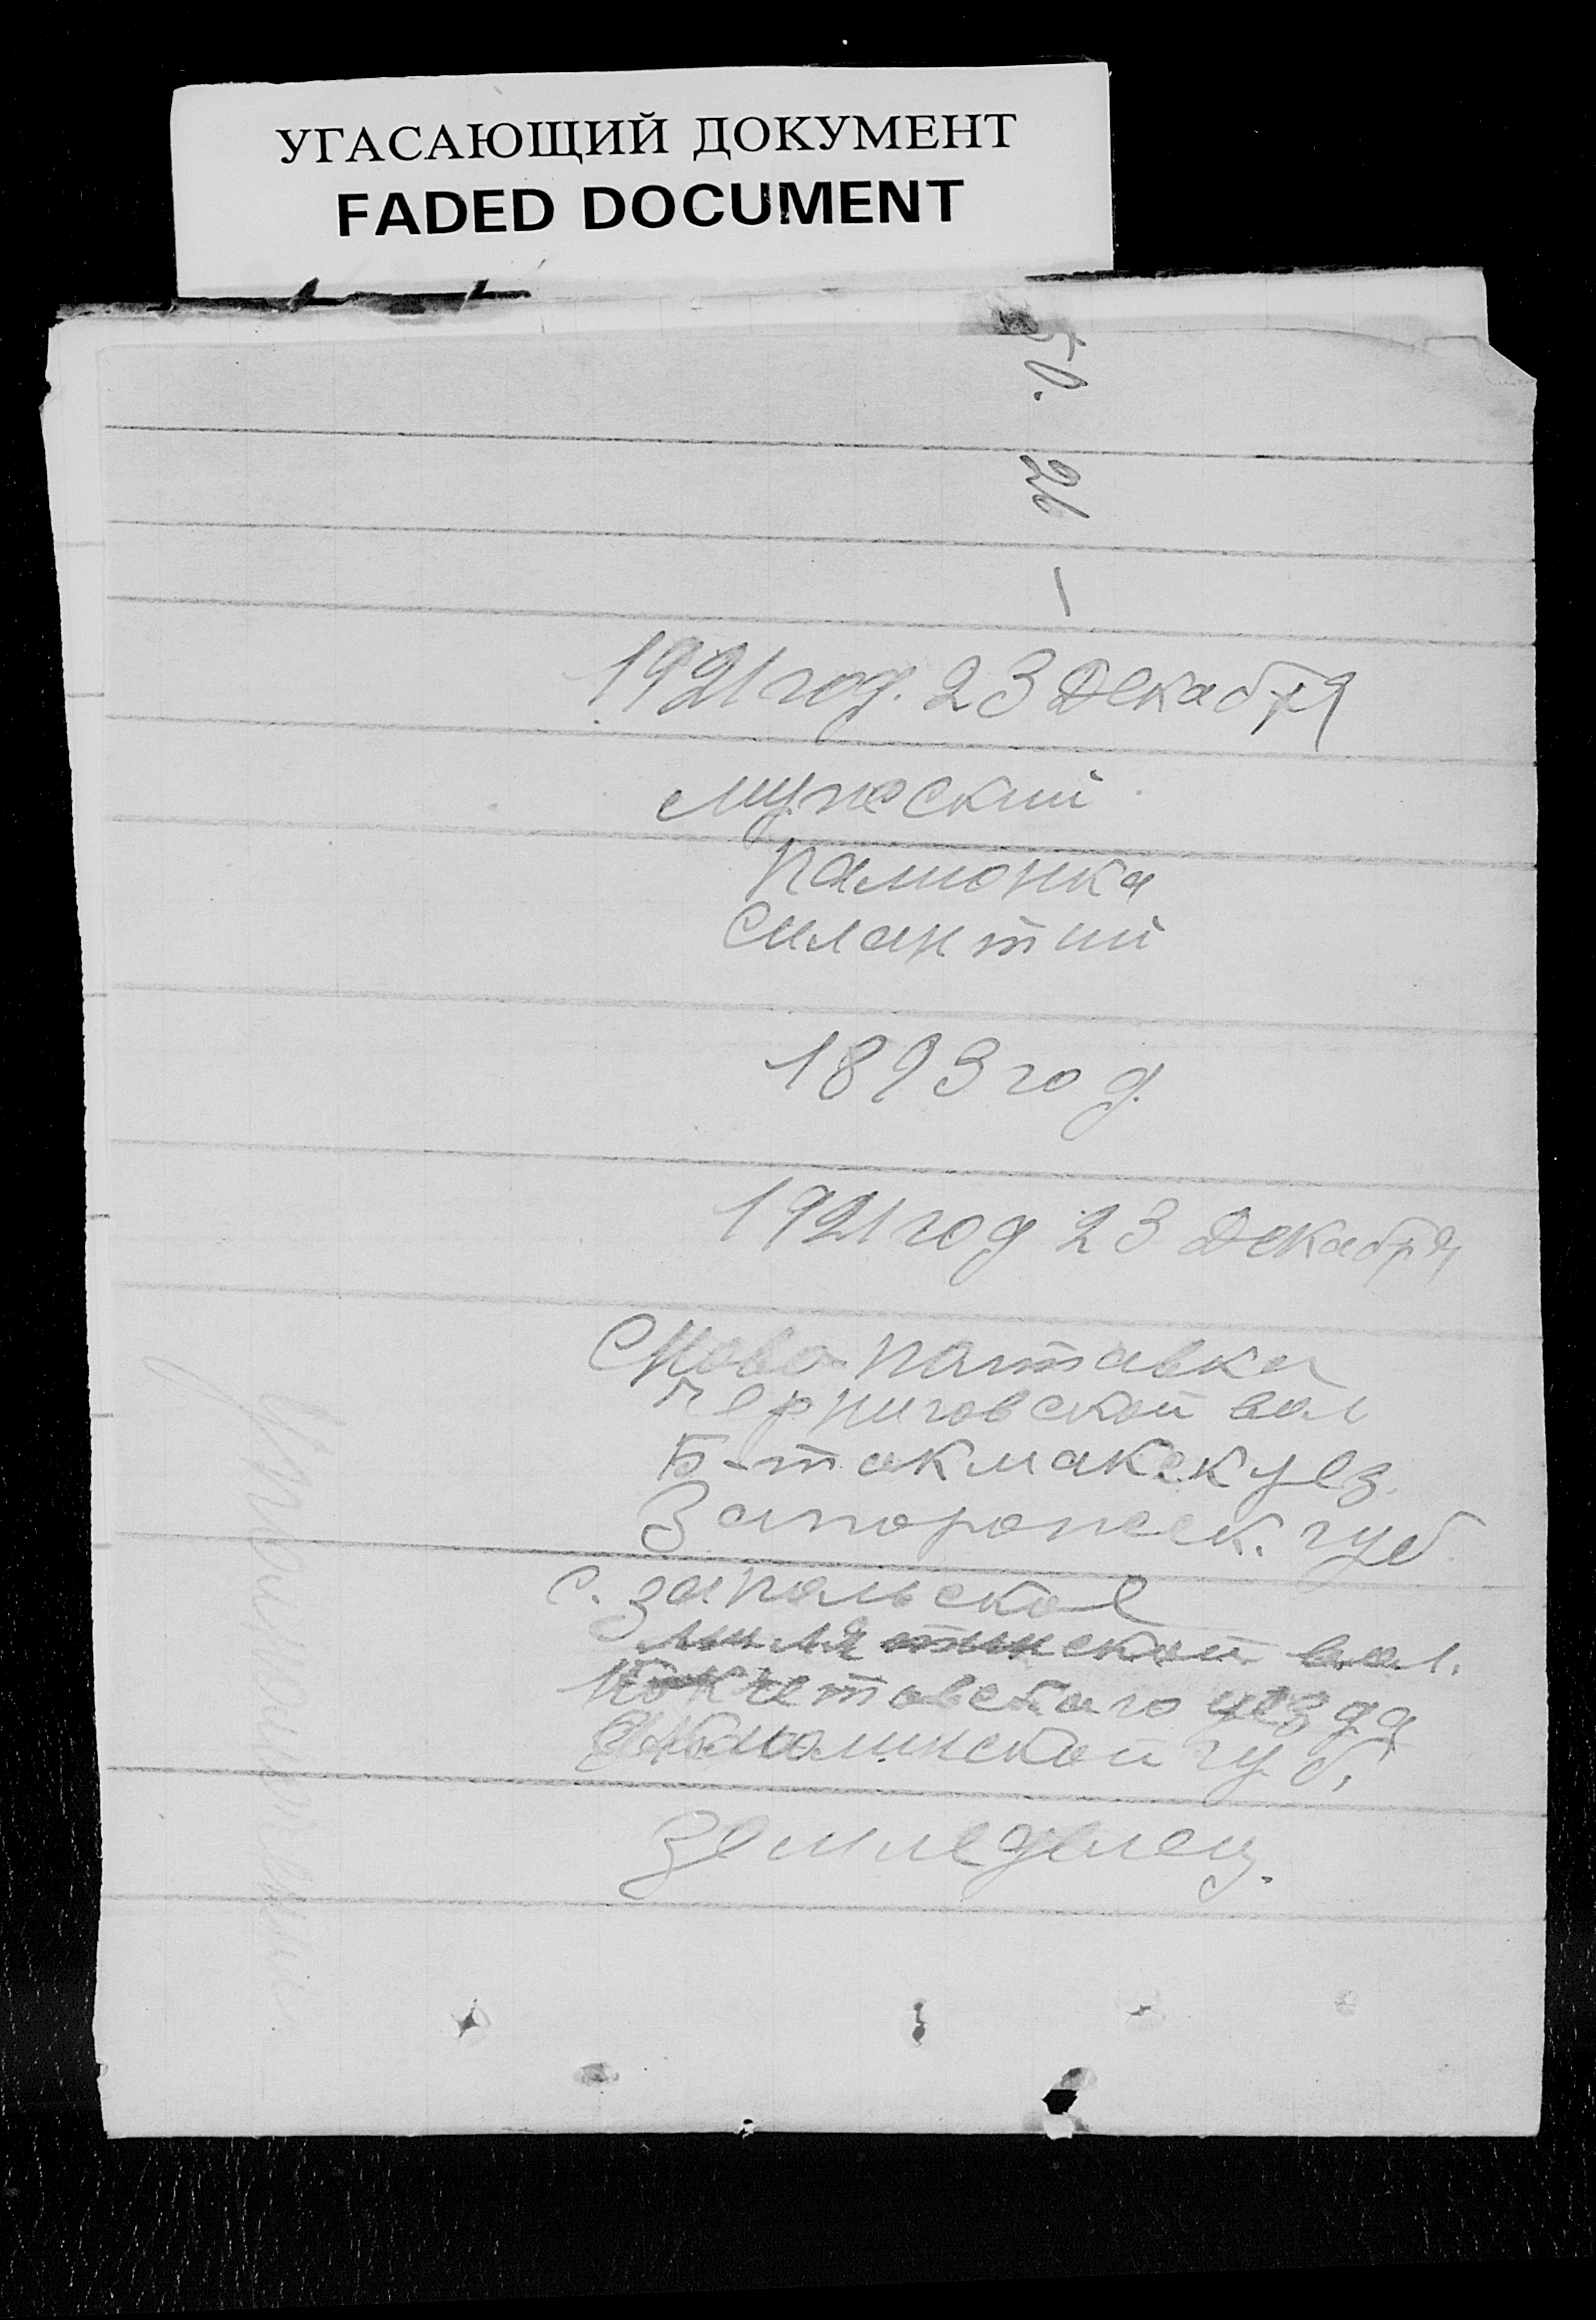 УГАСАЮЩИЙ ДОКУМЕНТ
FADED DOCUMENT
50. 26 —
1921 год. 23 Декабря
мужеский
Палионка
Силантий
1893 год.
1921 год 23 Декабря
С Ново-Полтавка
Черниговской вол
Б-токмакск уез.
Запорожск. губ
с. запольское
вол.
Кокчетовского уезда
Акмолинской губ.
Земледелец.